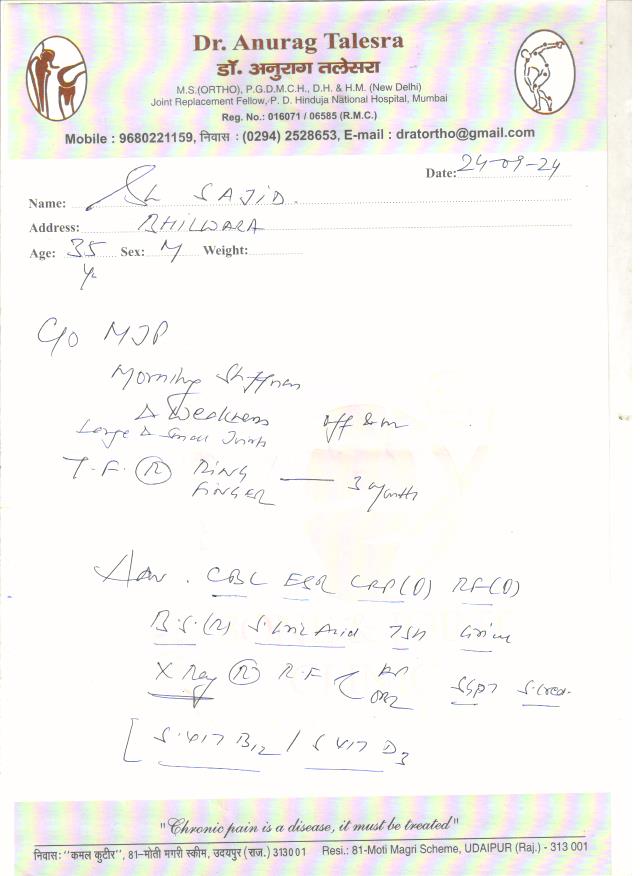 Dr. Anurag Talesra
डॉ. अनुराग तलेसरा
M.S.(ORTHO), P.G.D.M.C.H., D.H. & H.M. (New Delhi)
Joint Replacement Fellow, P. D. Hinduja National Hospital, Mumbai
Reg. No.: 016071 / 06585 (R.M.C.)
Mobile : 9680221159, निवास : (0294) 2528653, E-mail : dratortho@gmail.com
Date: 24-09-24
Name: Sh SAJID.
Address: BHILWARA
Age: 35 Sex: M Weight:
yr
C/o MJP
Morning Stiffness
& Weakness off & on
Large & Small Joints
T.F. (R) RING
FINGER — 3 months
Adv. CBC ESR CRP(Q) RF(Q)
B.S.(R) S.Uric Acid TSH Urine
X Ray (R) R.F AP SGPT S.Creat.
OBL
[ S.VIT B12 / S VIT D3
"Chronic pain is a disease, it must be treated"
निवास: "कमल कुटीर", 81-मोती मगरी स्कीम, उदयपुर (राज.) 313001 Resi.: 81-Moti Magri Scheme, UDAIPUR (Raj.) - 313 001